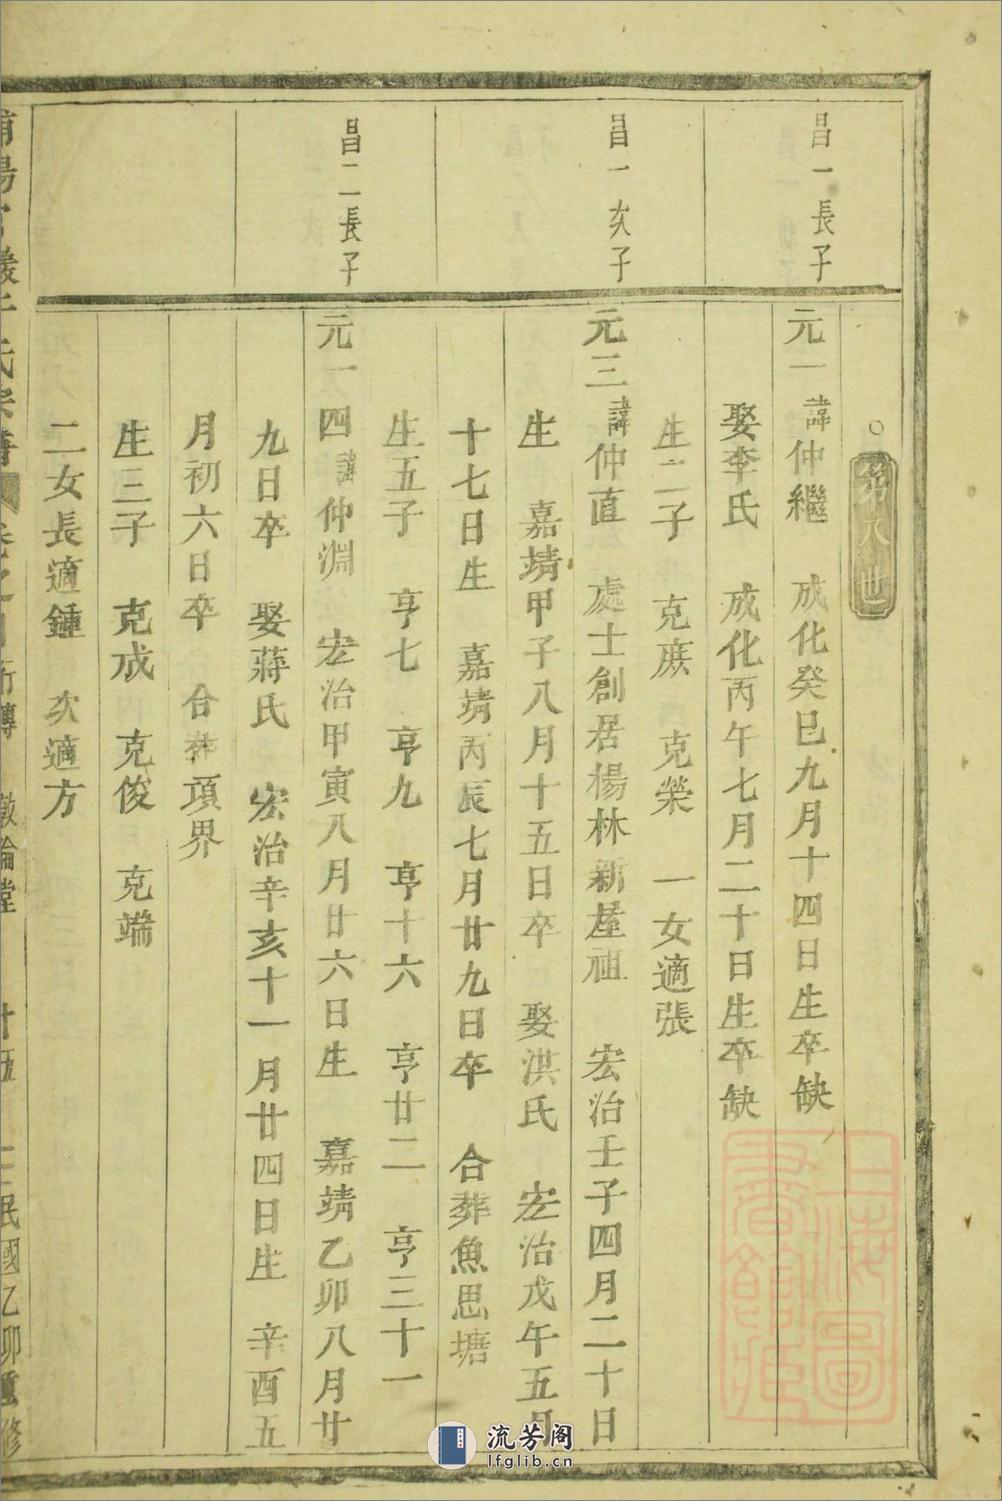 第八世
昌一長子
元一諱仲繼 成化癸巳九月十四日生卒缺
娶李氏 成化丙午七月二十日生卒缺
生二子 克蔗 克榮 一女適張
昌一次子
元三諱仲直 處士創居楊林新屋祖 宏治壬子四月二十日
生 嘉靖甲子八月十五日卒 娶洪氏 宏治戊午五月
十七日生 嘉靖丙辰七月廿九日卒 合葬魚思塘
生五子 亨七 亨九 亨十六 亨廿二 亨三十一
昌二長子
元一四諱仲淵 宏治甲寅八月廿六日生 嘉靖乙卯八月廿
九日卒 娶蔣氏 宏治辛亥十一月廿四日生 辛酉五
月初六日卒 合葬項界
生三子 克成 克俊 克端
二女長適鍾 次適方
氏宗譜 卷之 行傳 敦倫堂 十五 民國乙卯重修
上海圖書館藏
流芳阁
lfglib.cn